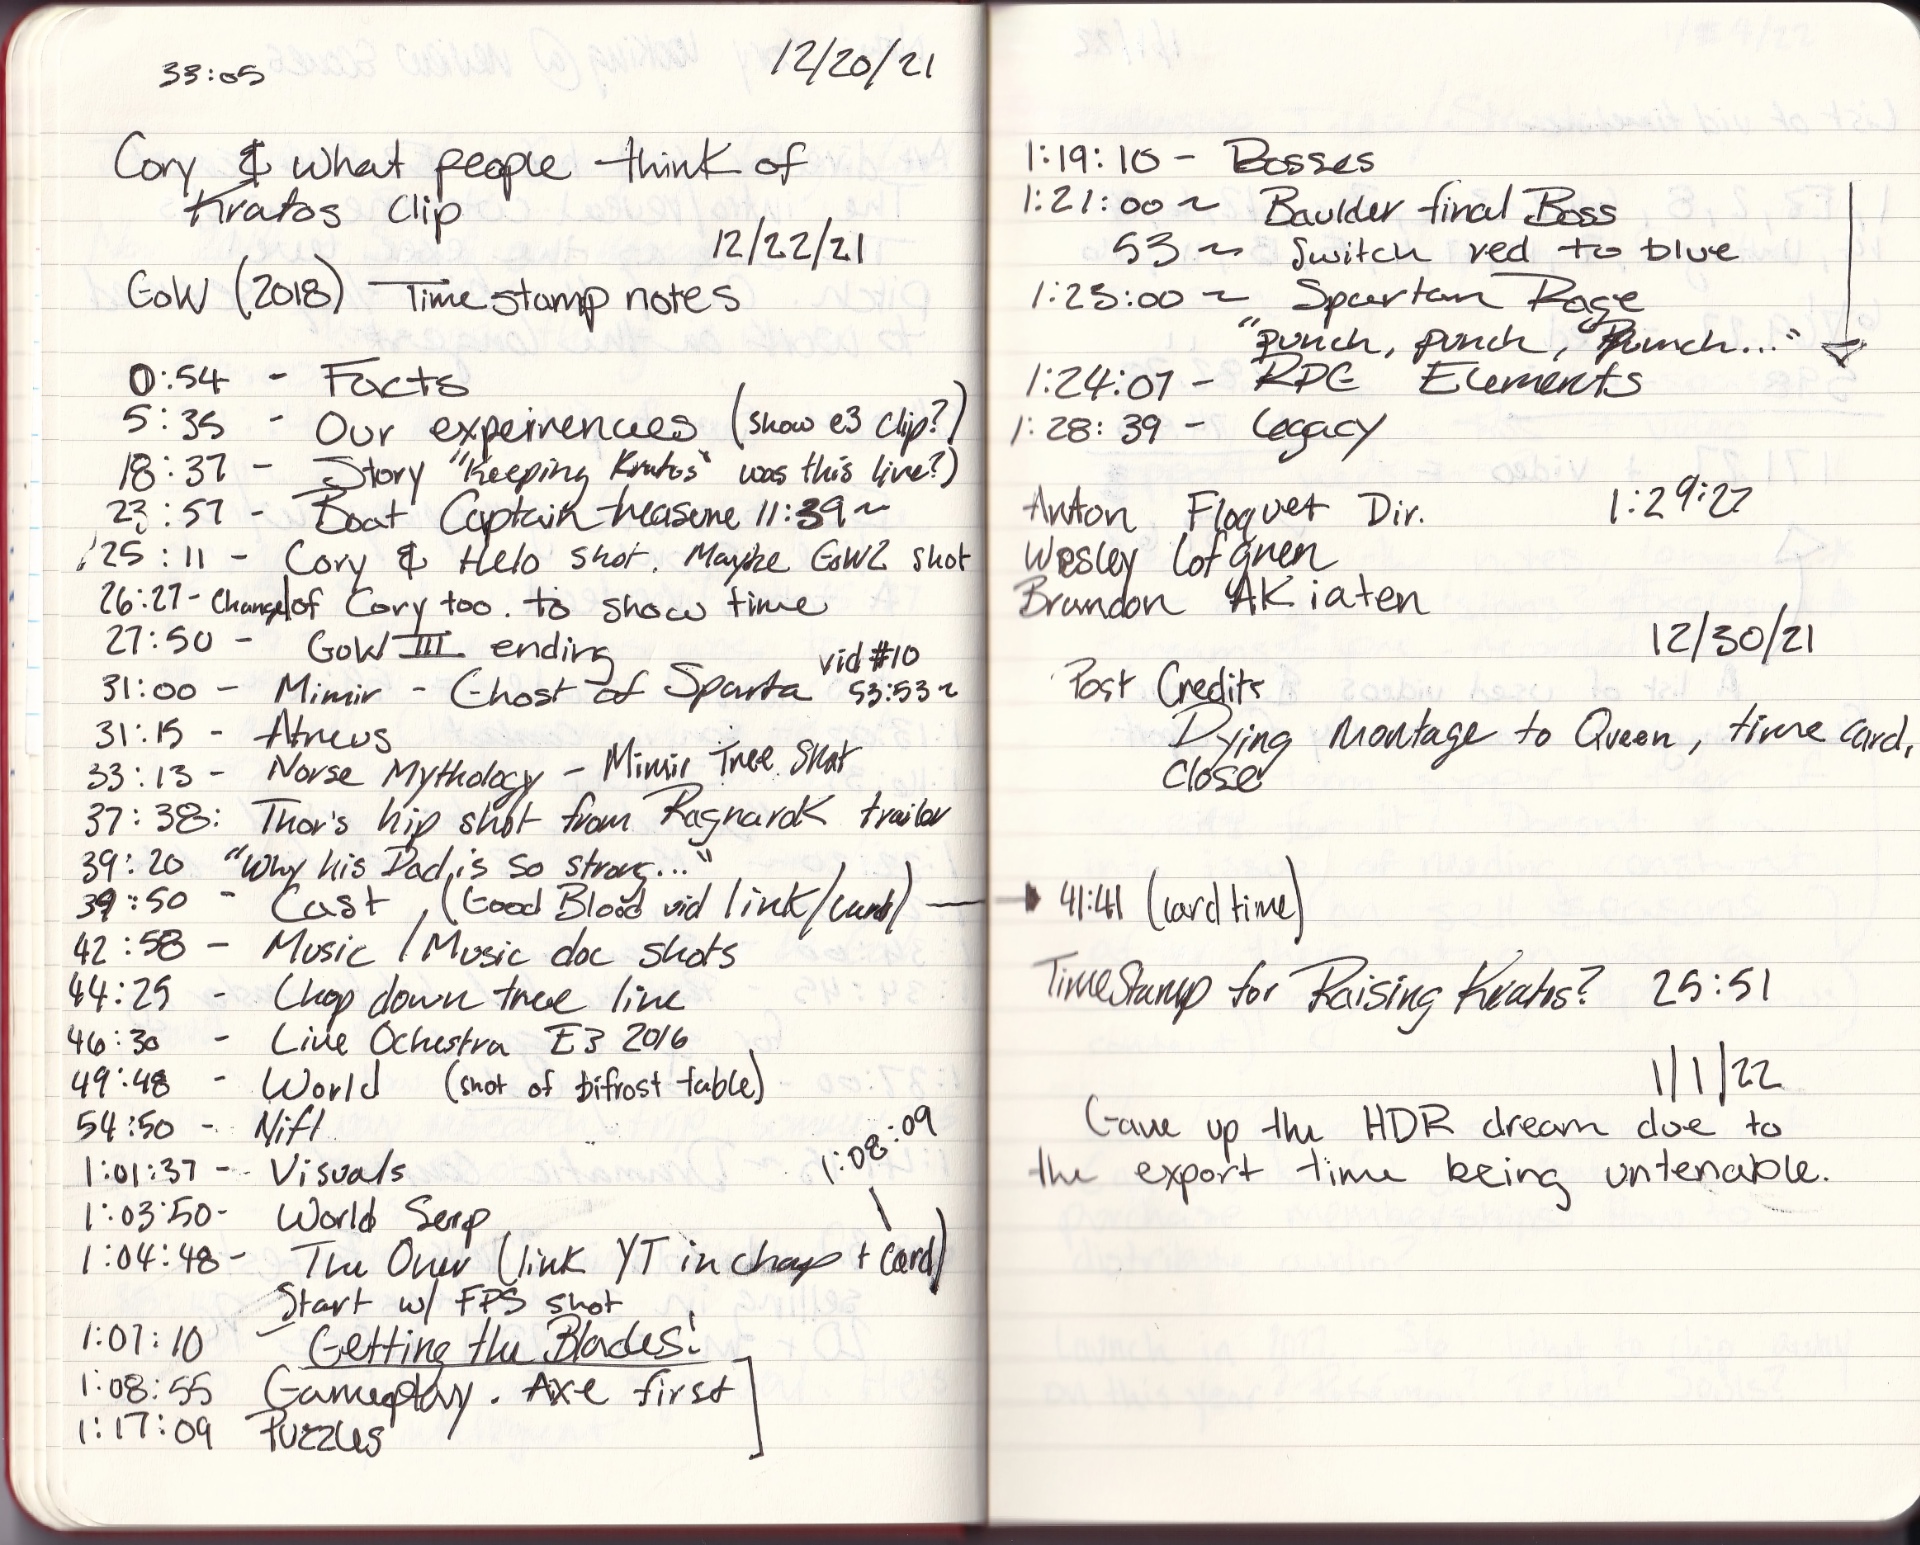 33:05
12/20/21
Cory & what people think of
Kratos Clip
12/22/21
GoW (2018) Timestamp notes
0:54 - Facts
5:35 - Our expeirences (show e3 clip?)
18:37 - Story "Keeping Kratos" was this line?)
23:57 - Boat Captain treasure 11:39~
25:11 - Cory & Helo shot. Maybe GoW2 shot
26:27 - Change of Cory too. to show time
27:50 - GoW III ending
vid #10
31:00 - Mimir - Ghost of Sparta 53:53~
31:15 - Atreus
33:13 - Norse Mythology - Mimir Tree Shot
37:38: Thor's hip shot from Ragnarok trailor
39:20 "Why his Dad is so strong..."
39:50 - Cast, (Good Blood vid link/card)
42:58 - Music / Music doc shots
44:29 - Chop down tree line
46:30 - Live Ochestra E3 2016
49:48 - World (shot of bifrost table)
54:50 - Nifl
1:01:37 - Visuals
1:08:09
1:03:50 - World Serp
1:04:48 - The Oner (link YT in chap + card)
Start w/ FPS shot
1:07:10 Getting the Blades!
1:08:55 Gameplay. Axe first
1:17:09 Puzzles
1:19:10 - Bosses
1:21:00 ~ Baulder final Boss
53 ~ Switch red to blue
1:23:00 ~ Spartan Rage
"punch, punch, Punch..."
1:24:07 - RPG Elements
1:28:39 - Legacy
Anton Floquet Dir. 1:29:27
Wesley Lofgren
Brandon AKiaten
12/30/21
Post Credits
Dying Montage to Queen, time card,
close
41:41 (card time)
TimeStamp for Raising Kratos? 25:51
1/1/22
Gave up the HDR dream due to
the export time being untenable.